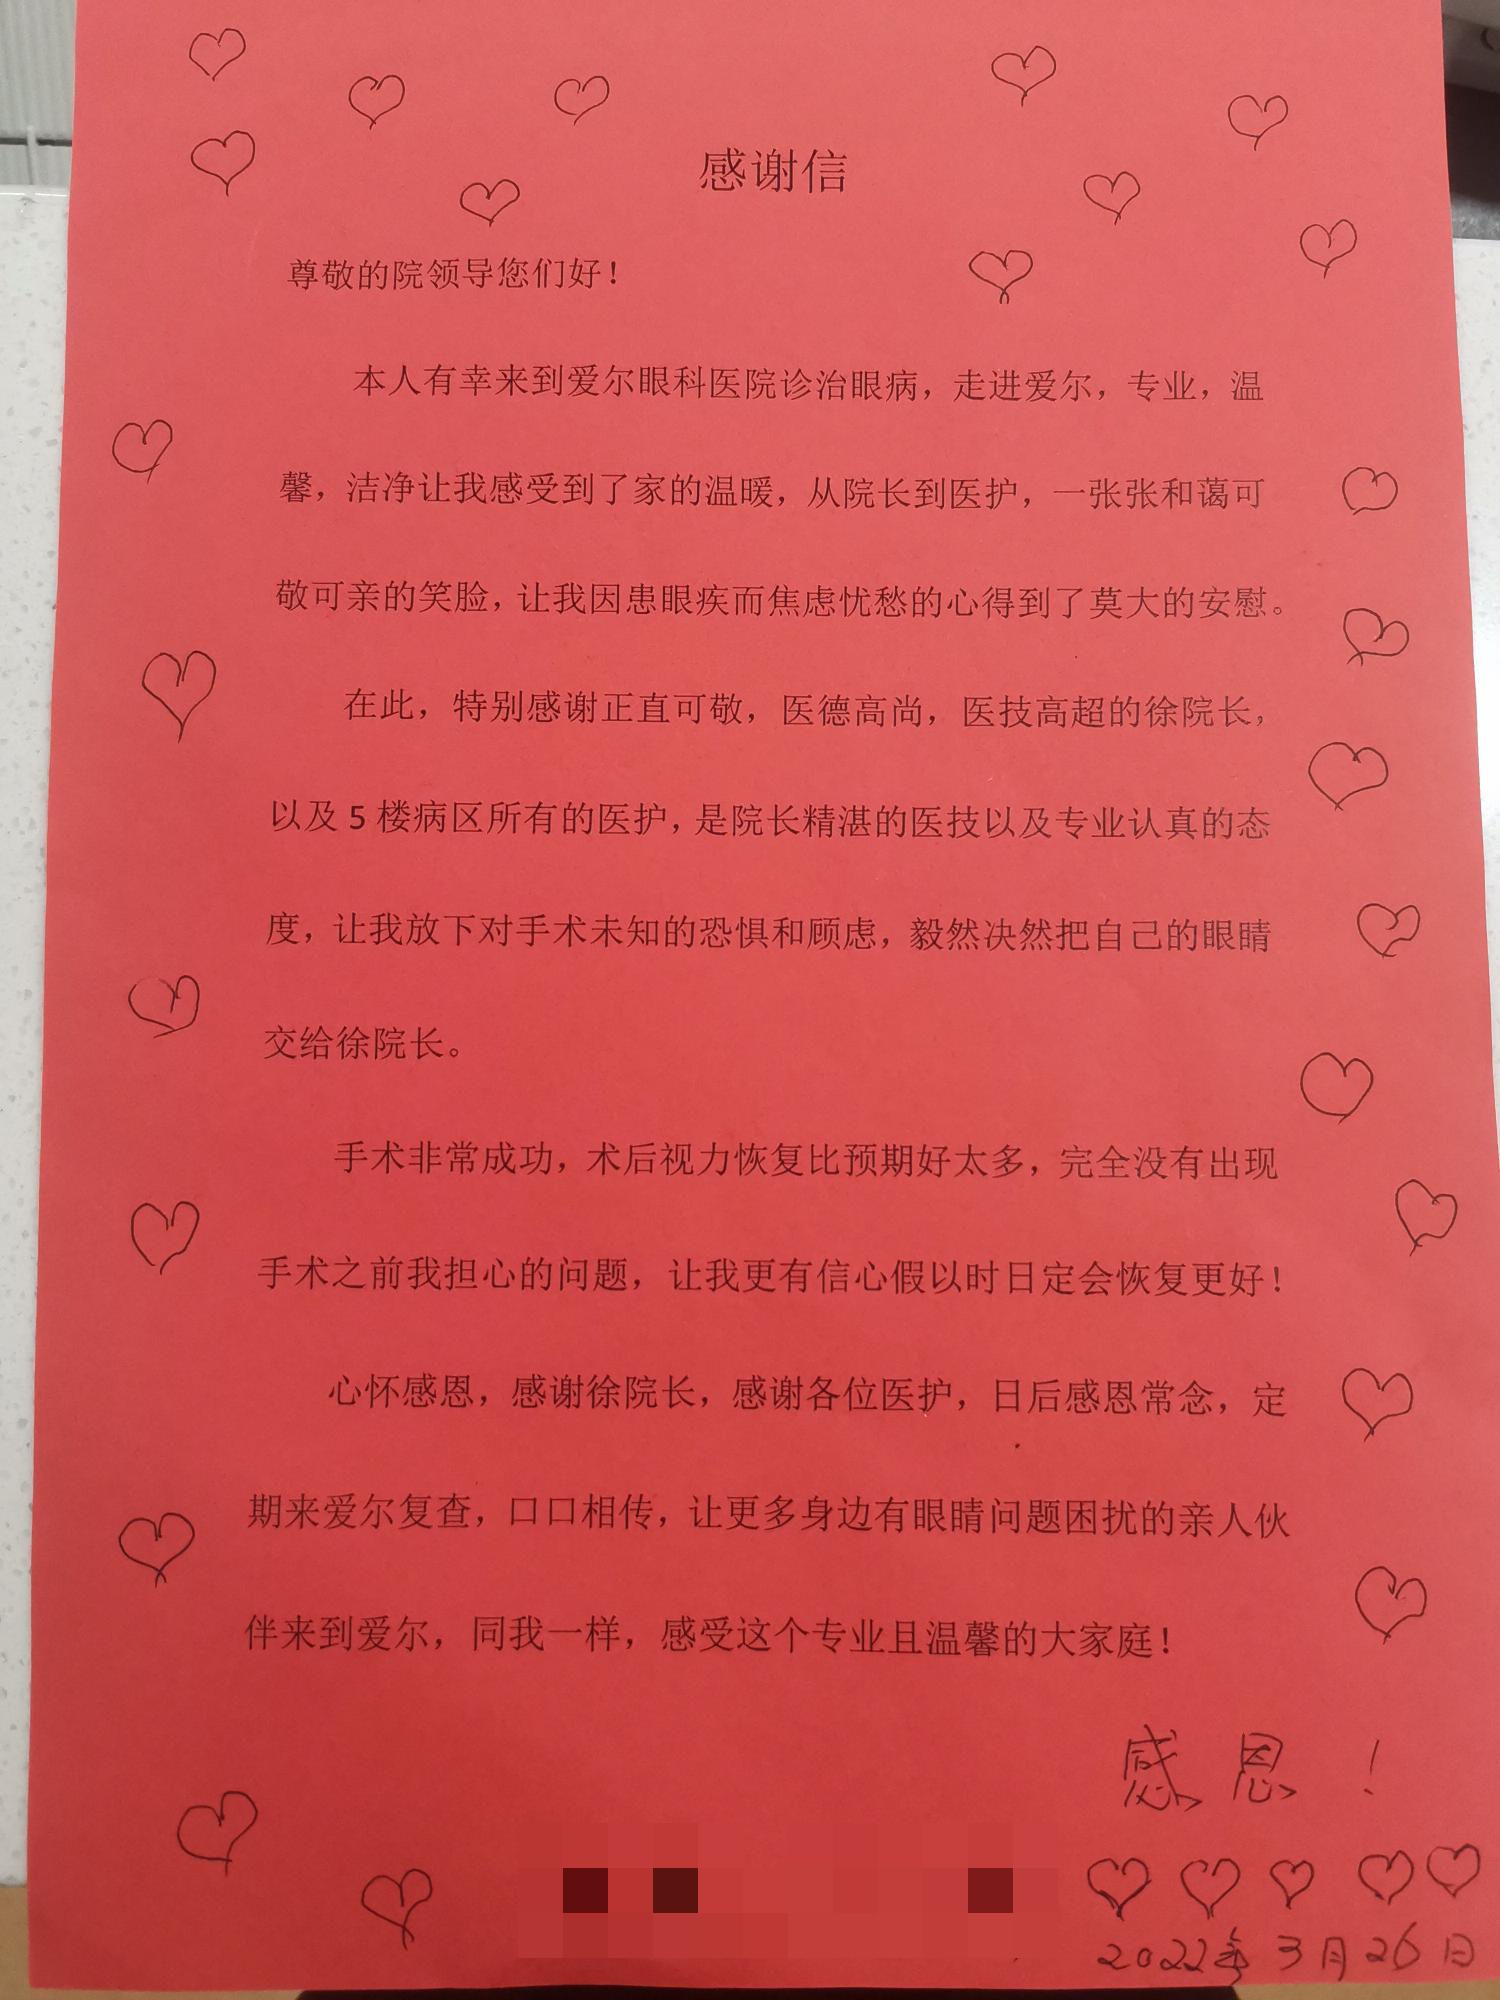 感谢信
尊敬的院领导您们好！
本人有幸来到爱尔眼科医院诊治眼病，走进爱尔，专业，温
馨，洁净让我感受到了家的温暖，从院长到医护，一张张和蔼可
敬可亲的笑脸，让我因患眼疾而焦虑忧愁的心得到了莫大的安慰。
在此，特别感谢正直可敬，医德高尚，医技高超的徐院长，
以及 5 楼病区所有的医护，是院长精湛的医技以及专业认真的态
度，让我放下对手术未知的恐惧和顾虑，毅然决然把自己的眼睛
交给徐院长。
手术非常成功，术后视力恢复比预期好太多，完全没有出现
手术之前我担心的问题，让我更有信心假以时日定会恢复更好！
心怀感恩，感谢徐院长，感谢各位医护，日后感恩常念，定
期来爱尔复查，口口相传，让更多身边有眼睛问题困扰的亲人伙
伴来到爱尔，同我一样，感受这个专业且温馨的大家庭！
感恩！
2022年3月26日